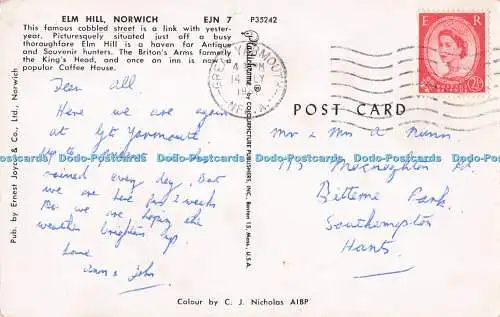 ELM HILL, NORWICH EJN 7 P35242
This famous cobbled street is a link with yester-
year. Picturesquely situated just off a busy
thoroughfore Elm Hill is a haven for Antique
and Souvenir hunters. The Briton's Arms formerly
the King's Head, and once an inn is now a
popular Coffee House.
Dear All.
Here we are again
at Gt Yarmouth
rained every day, But
we are here for 2 weeks
So we are hoping the
weather brightens up.
Love
Ann & John
Pub. by Ernest Joyce & Co., Ltd., Norwich
Plastichrome ® by COLOURPICTURE PUBLISHERS, INC., Boston 15, Mass. U.S.A.
GREAT YARMOUTH
14 JLY
19
NORFOLK
E R
POSTAGE REVENUE
2½D
POST CARD
Mr & Mrs A Nunn
Macnaghten Rd.
Bitterne Park
Southampton
Hants.
Colour by C. J. Nicholas AIBP
Dodo-Postcards Dodo-Postcards Dodo-Postcards Dodo-Postcards Dodo-Postcards Dodo-Postcards